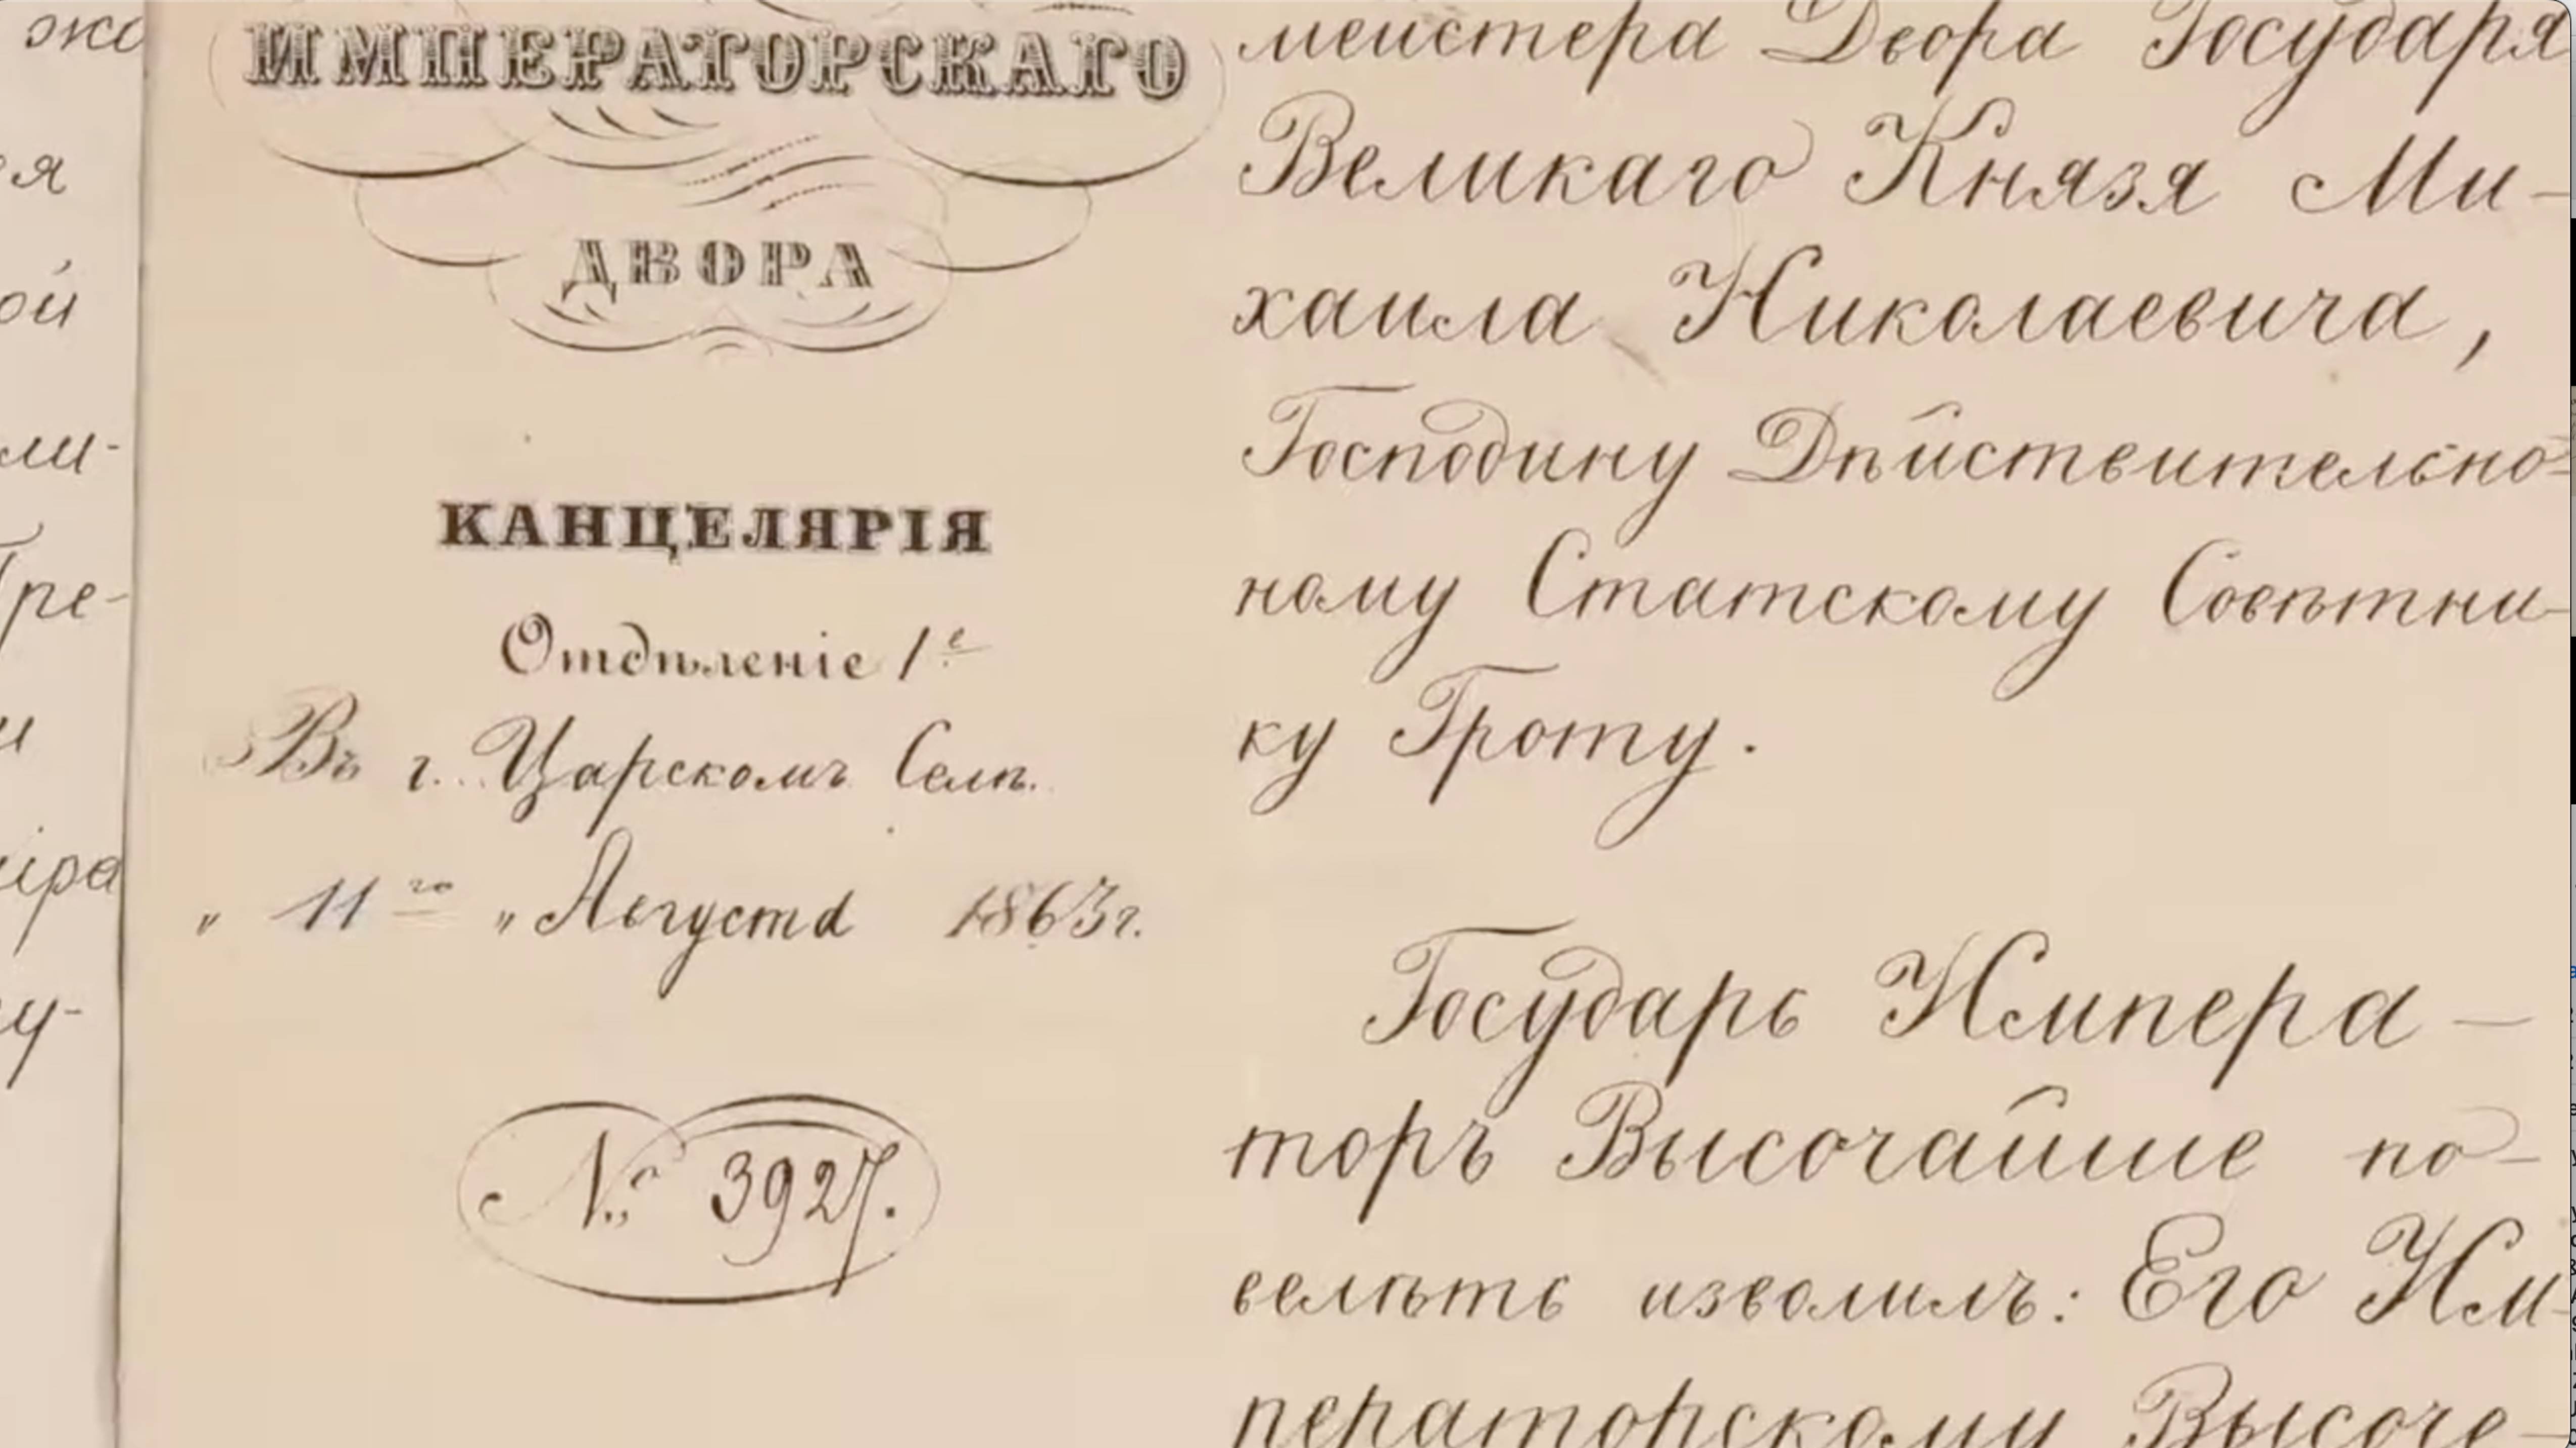 ИМПЕРАТОРСКАГО
ДВОРА
КАНЦЕЛЯРІЯ
Отдѣленіе 1е
Въ г. Царскомъ Селѣ.
„ 11го „ Августа 1863 г.
№ 3927.
мейстера Двора Государя
Великаго Князя Ми-
хаила Николаевича,
Господину Дѣйствительно-
ному Статскому Совѣтни-
ку Гроту.
Государь Импера-
торъ Высочайше по-
велѣть изволилъ: Его Им-
ператорскому Высоче-